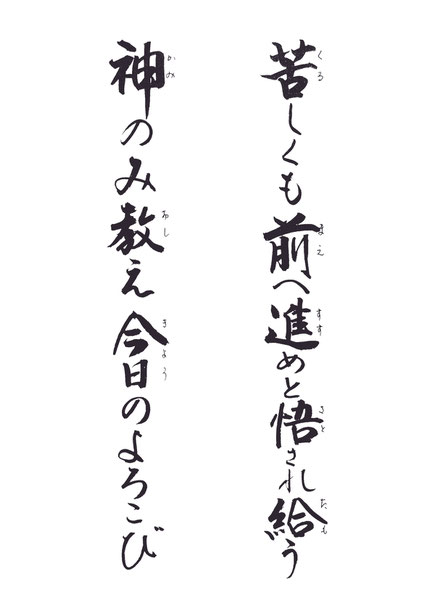 苦しくも前へ進めと悟され給う
神のみ教え今日のよろこび